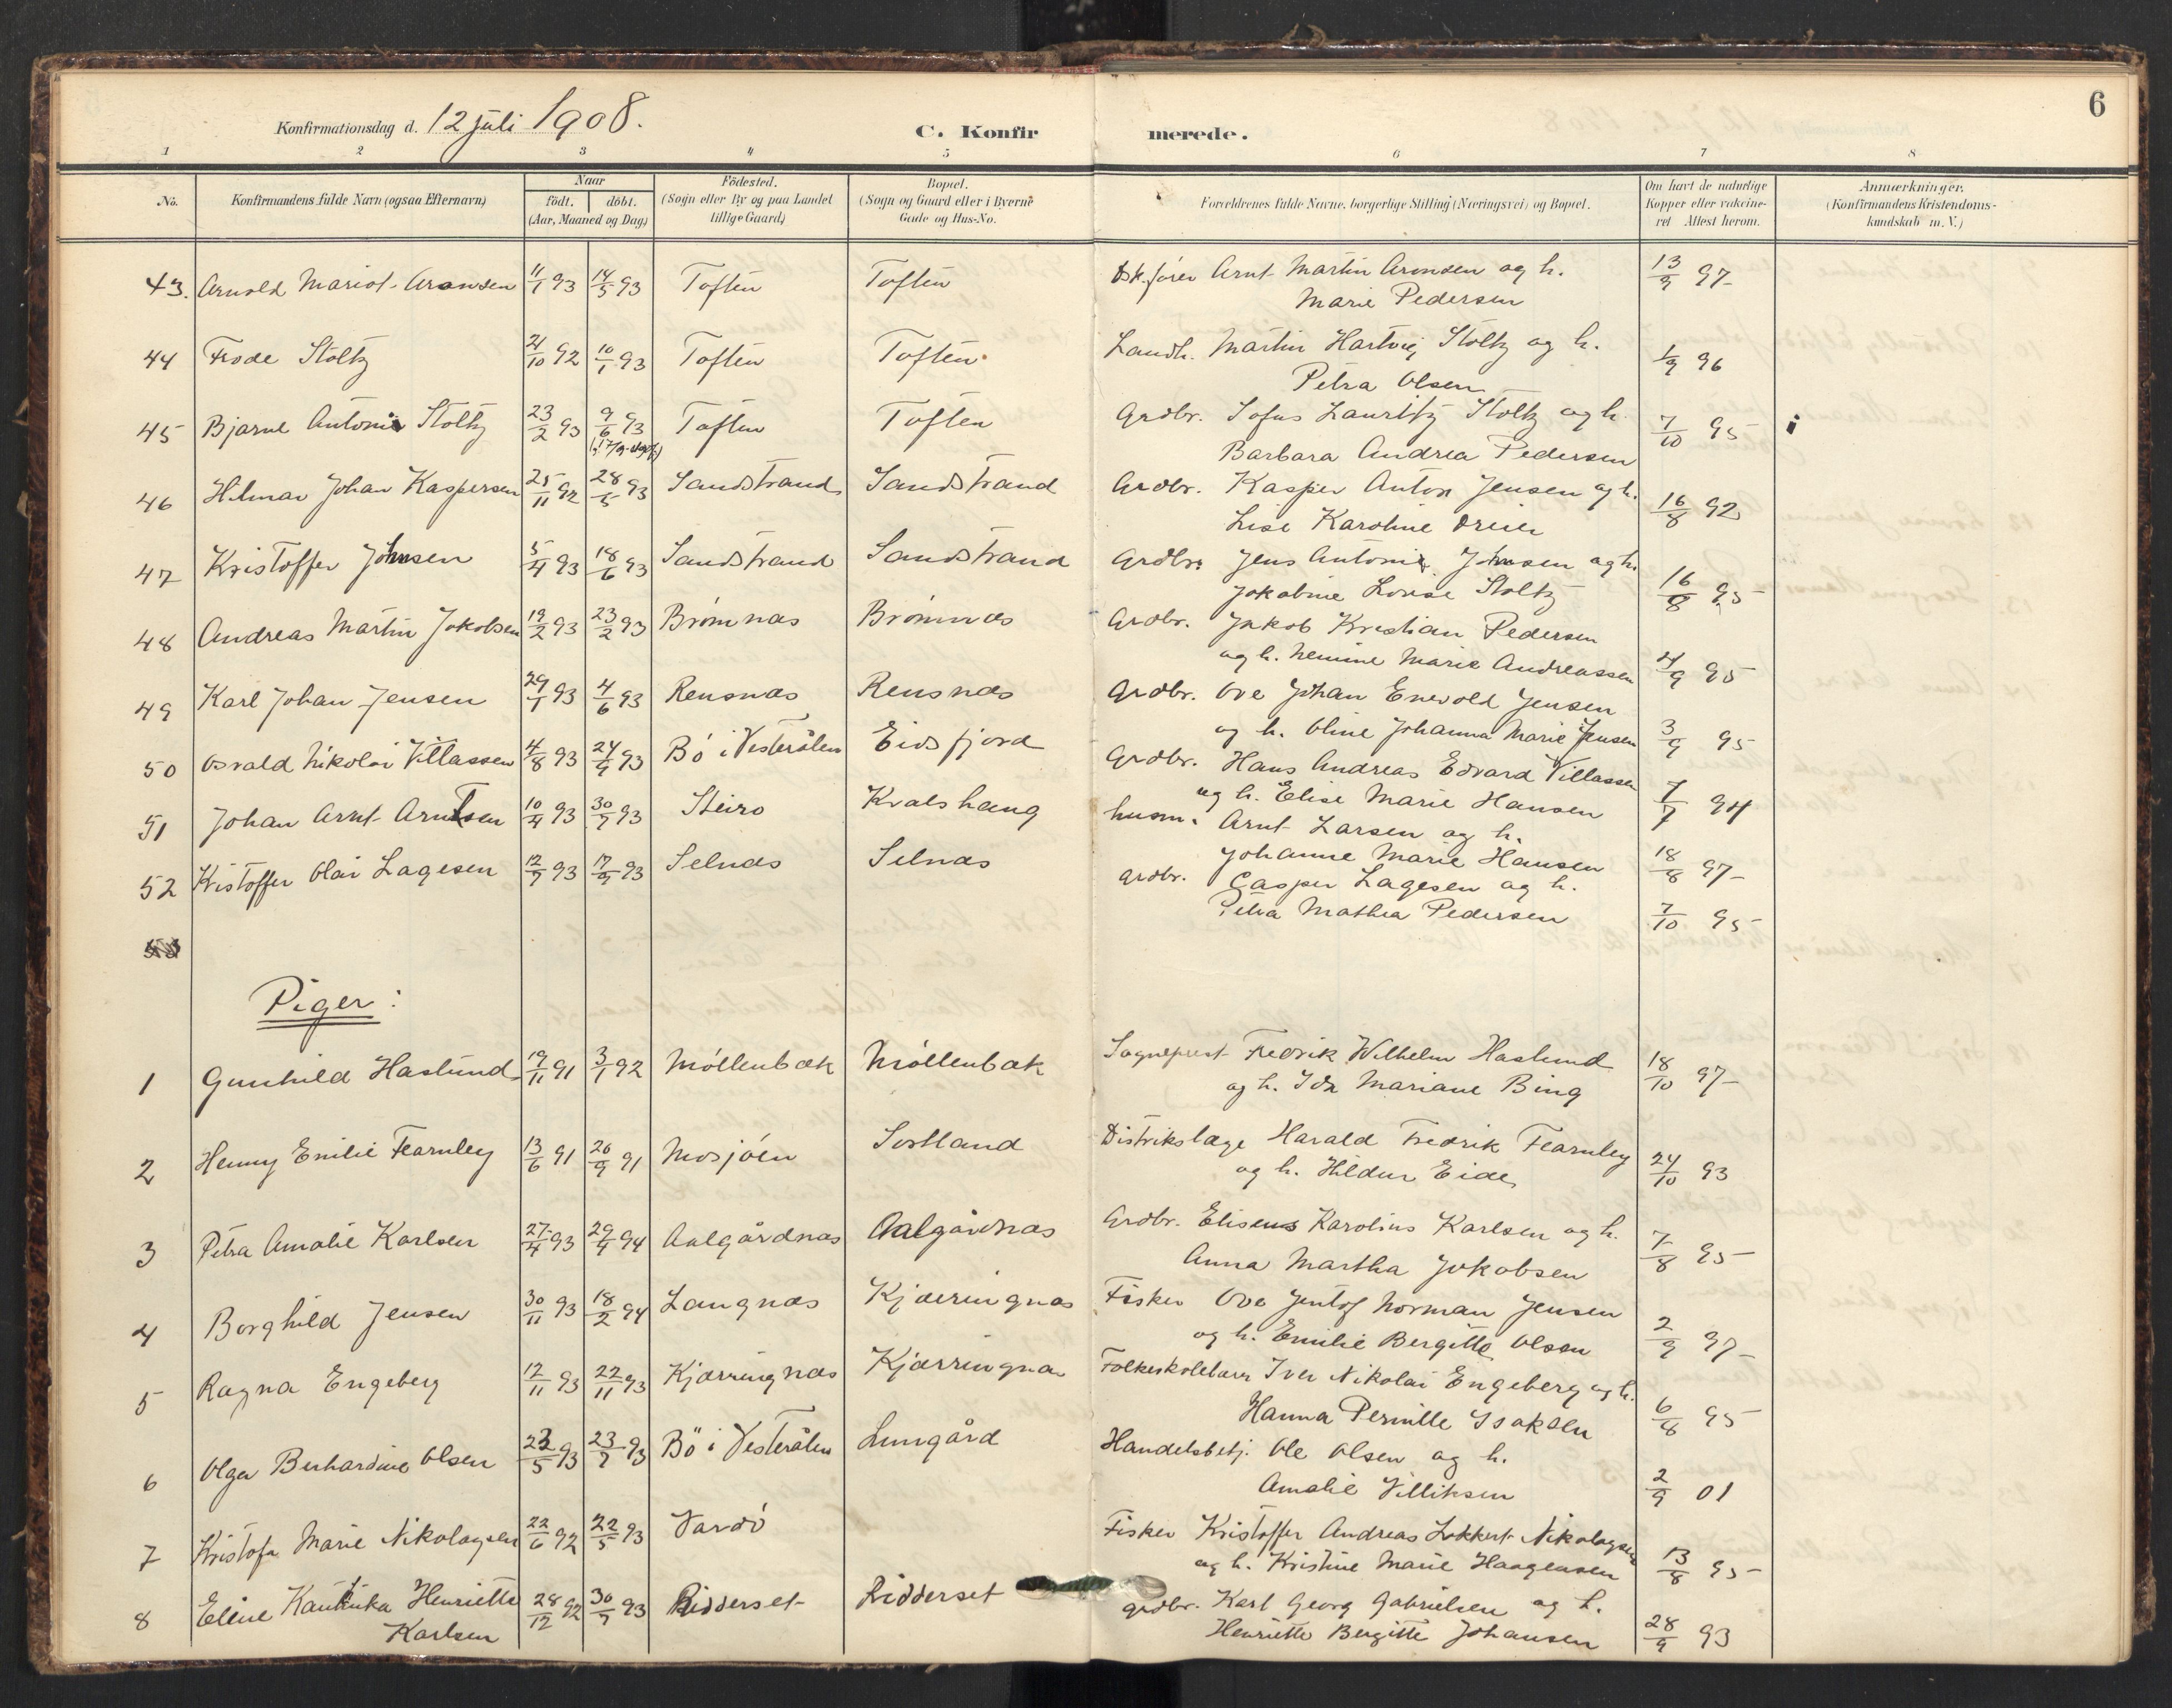 6
Konfirmationsdag d. 12 juli 1908.
C. Konfirmerede.
1 2 3 4 5 6 7 8
No.
Konfirmandens fulde Navn (ogsaa Efternavn)
Naar
födt. döbt.
(Aar, Maaned og Dag)
Födested.
(Sogn eller By og paa Landet
tillige Gaard)
Bopæl.
(Sogn og Gaard eller i Byerne
Gade og Hus-No.
Forældrenes fulde Navne, borgerlige Stilling (Næringsvei) og Bopæl.
Om havt de naturlige
Kopper eller vakcine-
ret Attest herom.
Anmærkninger.
(Konfirmandens Kristendoms-
kundskab m. V.)
43. Arnold Mariot Aronsen 11/1 93 14/5 93 Toften Toften Arnt Martin Aronsen og h. 13/9 97
Marie Pedersen
44 Frode Stoltz 21/10 92 10/1 93 Toften Toften Landh. Martin Hartvig Stoltz og h. 1/9 96
Petra Olsen
45 Bjarne Antoni Stoltz 23/2 93 9/6 93 Toften Toften Grdbr. Sofus Lauritz Stoltz og h. 7/10 95
Barbara Andrea Pedersen
46 Hilmar Johan Kaspersen 25/11 92 28/5 93 Sandstrand Sandstrand Grdbr. Kasper Anton Jensen og h. 16/8 92
Lise Karoline Dreier
47 Kristoffer Johnsen 5/4 93 18/6 93 Sandstrand Sandstrand Grdbr. Jens Antoni Johnsen og h. 16/8 95
Jokobine Lovise Stoltz
48 Andreas Martin Jokobsen 19/2 93 23/2 93 Brömnæs Brömnæs Grdbr. Jakob Kristian Pedersen 4/9 95
og h. Nemine Marie Andreassen
49 Karl Johan Jensen 29/1 93 4/6 93 Rensnæs Rensnæs Grdbr. Ove Johan Enevold Jensen 3/9 95
og h. Oline Johanna Marie Jensen
50 Osvald Nikolai Villassen 4/8 93 24/9 93 Bö i Vesterålen Eidsfjord Grdbr. Hans Andreas Edvard Villassen 7/7 94
og h. Elise Marie Hansen
51 Johan Arnt Arntsen 10/4 93 30/7 93 Steiro Kvalshaug husm. Arnt Larsen og h. 18/8 97
Johanne Marie Hansen
52 Kristoffer Olai Lagesen 12/7 93 17/9 93 Selnæs Selnæs Grdbr. Casper Lagesen og h. 7/10 95
Petra Mathea Pedersen
53
Piger:
1 Gunhild Haslund 19/11 91 3/1 92 Möllenbæk Möllenbæk Sogneprest Fredrik Wilhelm Haslund 18/10 97
og h. Ida Mariane Bing
2 Henny Emilie Fearnley 13/6 91 20/9 91 Mosjöen Sortland Distrikslæge Harald Fredrik Fearnley 24/10 93
og h. Hildur Eide
3 Petra Amalie Karlsen 27/4 93 29/4 94 Aalgårdnæs Aalgårdnæs Grdbr. Eliseus Karolius Karlsen og h. 7/8 95
Anna Martha Jokobsen
4 Borghild Jensen 30/11 93 18/2 94 Langnæs Kjæringnæs Fisker Ove Jentof Norman Jensen 2/9 97
og h. Emilie Bergitte Olsen
5 Ragna Engeberg 12/11 93 22/11 93 Kjærringnæs Kjærringnæs Folkeskolelærer Iver Nikolai Engeberg og h. 6/8 95
Hanna Pernille Isaksen
6 Olga Berhardine Olsen 22/5 93 23/7 93 Bö i Vesterålen Lungård Handelsbetj. Ole Olsen og h. 2/9 01
Amalie Villiksen
7 Kristofa Marie Nikolaysen 22/6 92 22/5 93 Vardö Fisker Kristoffer Andreas Lokkert Nikolaysen 13/8 95
og h. Kristine Marie Haagensen
8 Eline Kathinka Henriette 28/12 92 30/7 93 Ridderset Ridderset grdbr. Karl Georg Gabrielsen og h. 28/9 93
Karlsen Henriette Bergitte Johansen